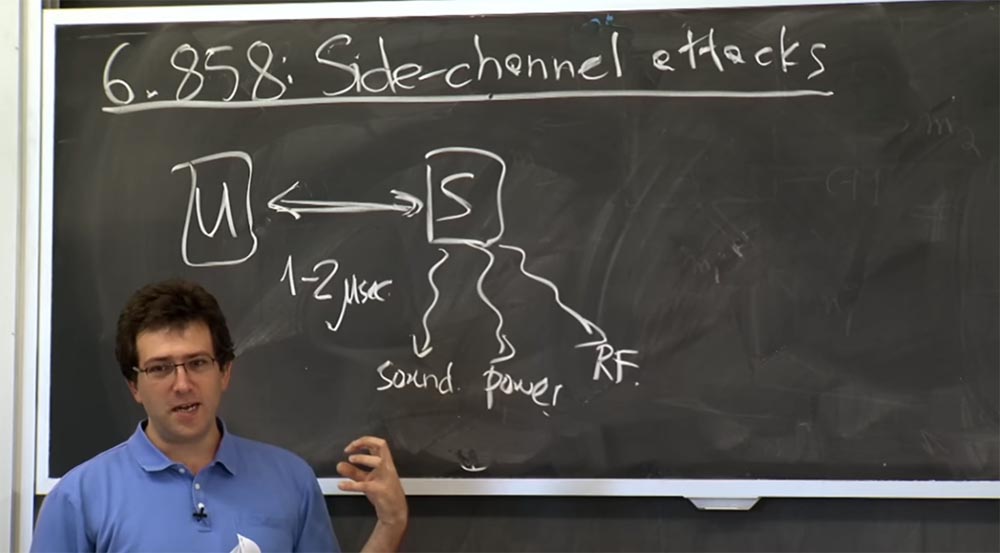 6.858: Side-channel attacks
U
S
1-2 μsec.
sound. power RF.